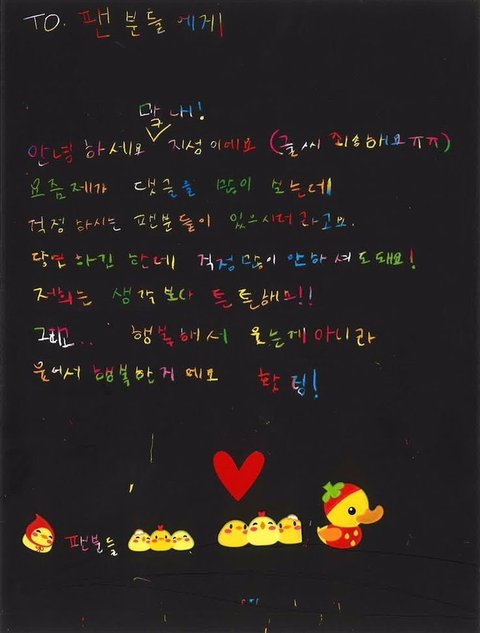 TO. 팬 분들 에게
막내!
안녕하세요 지성이에요 (글씨 죄송해요ㅠㅠ)
요즘제가 댓글을 많이 보는데
걱정 하시는 팬분들이 있으시더라고요.
당연 하긴 한데 걱정 많이 안하셔도돼요!
저희는 생각보다 튼튼해요!!
그리고.. 행복해서 웃는게 아니라
웃어서 행복한거 에요 화팅!
팬분들